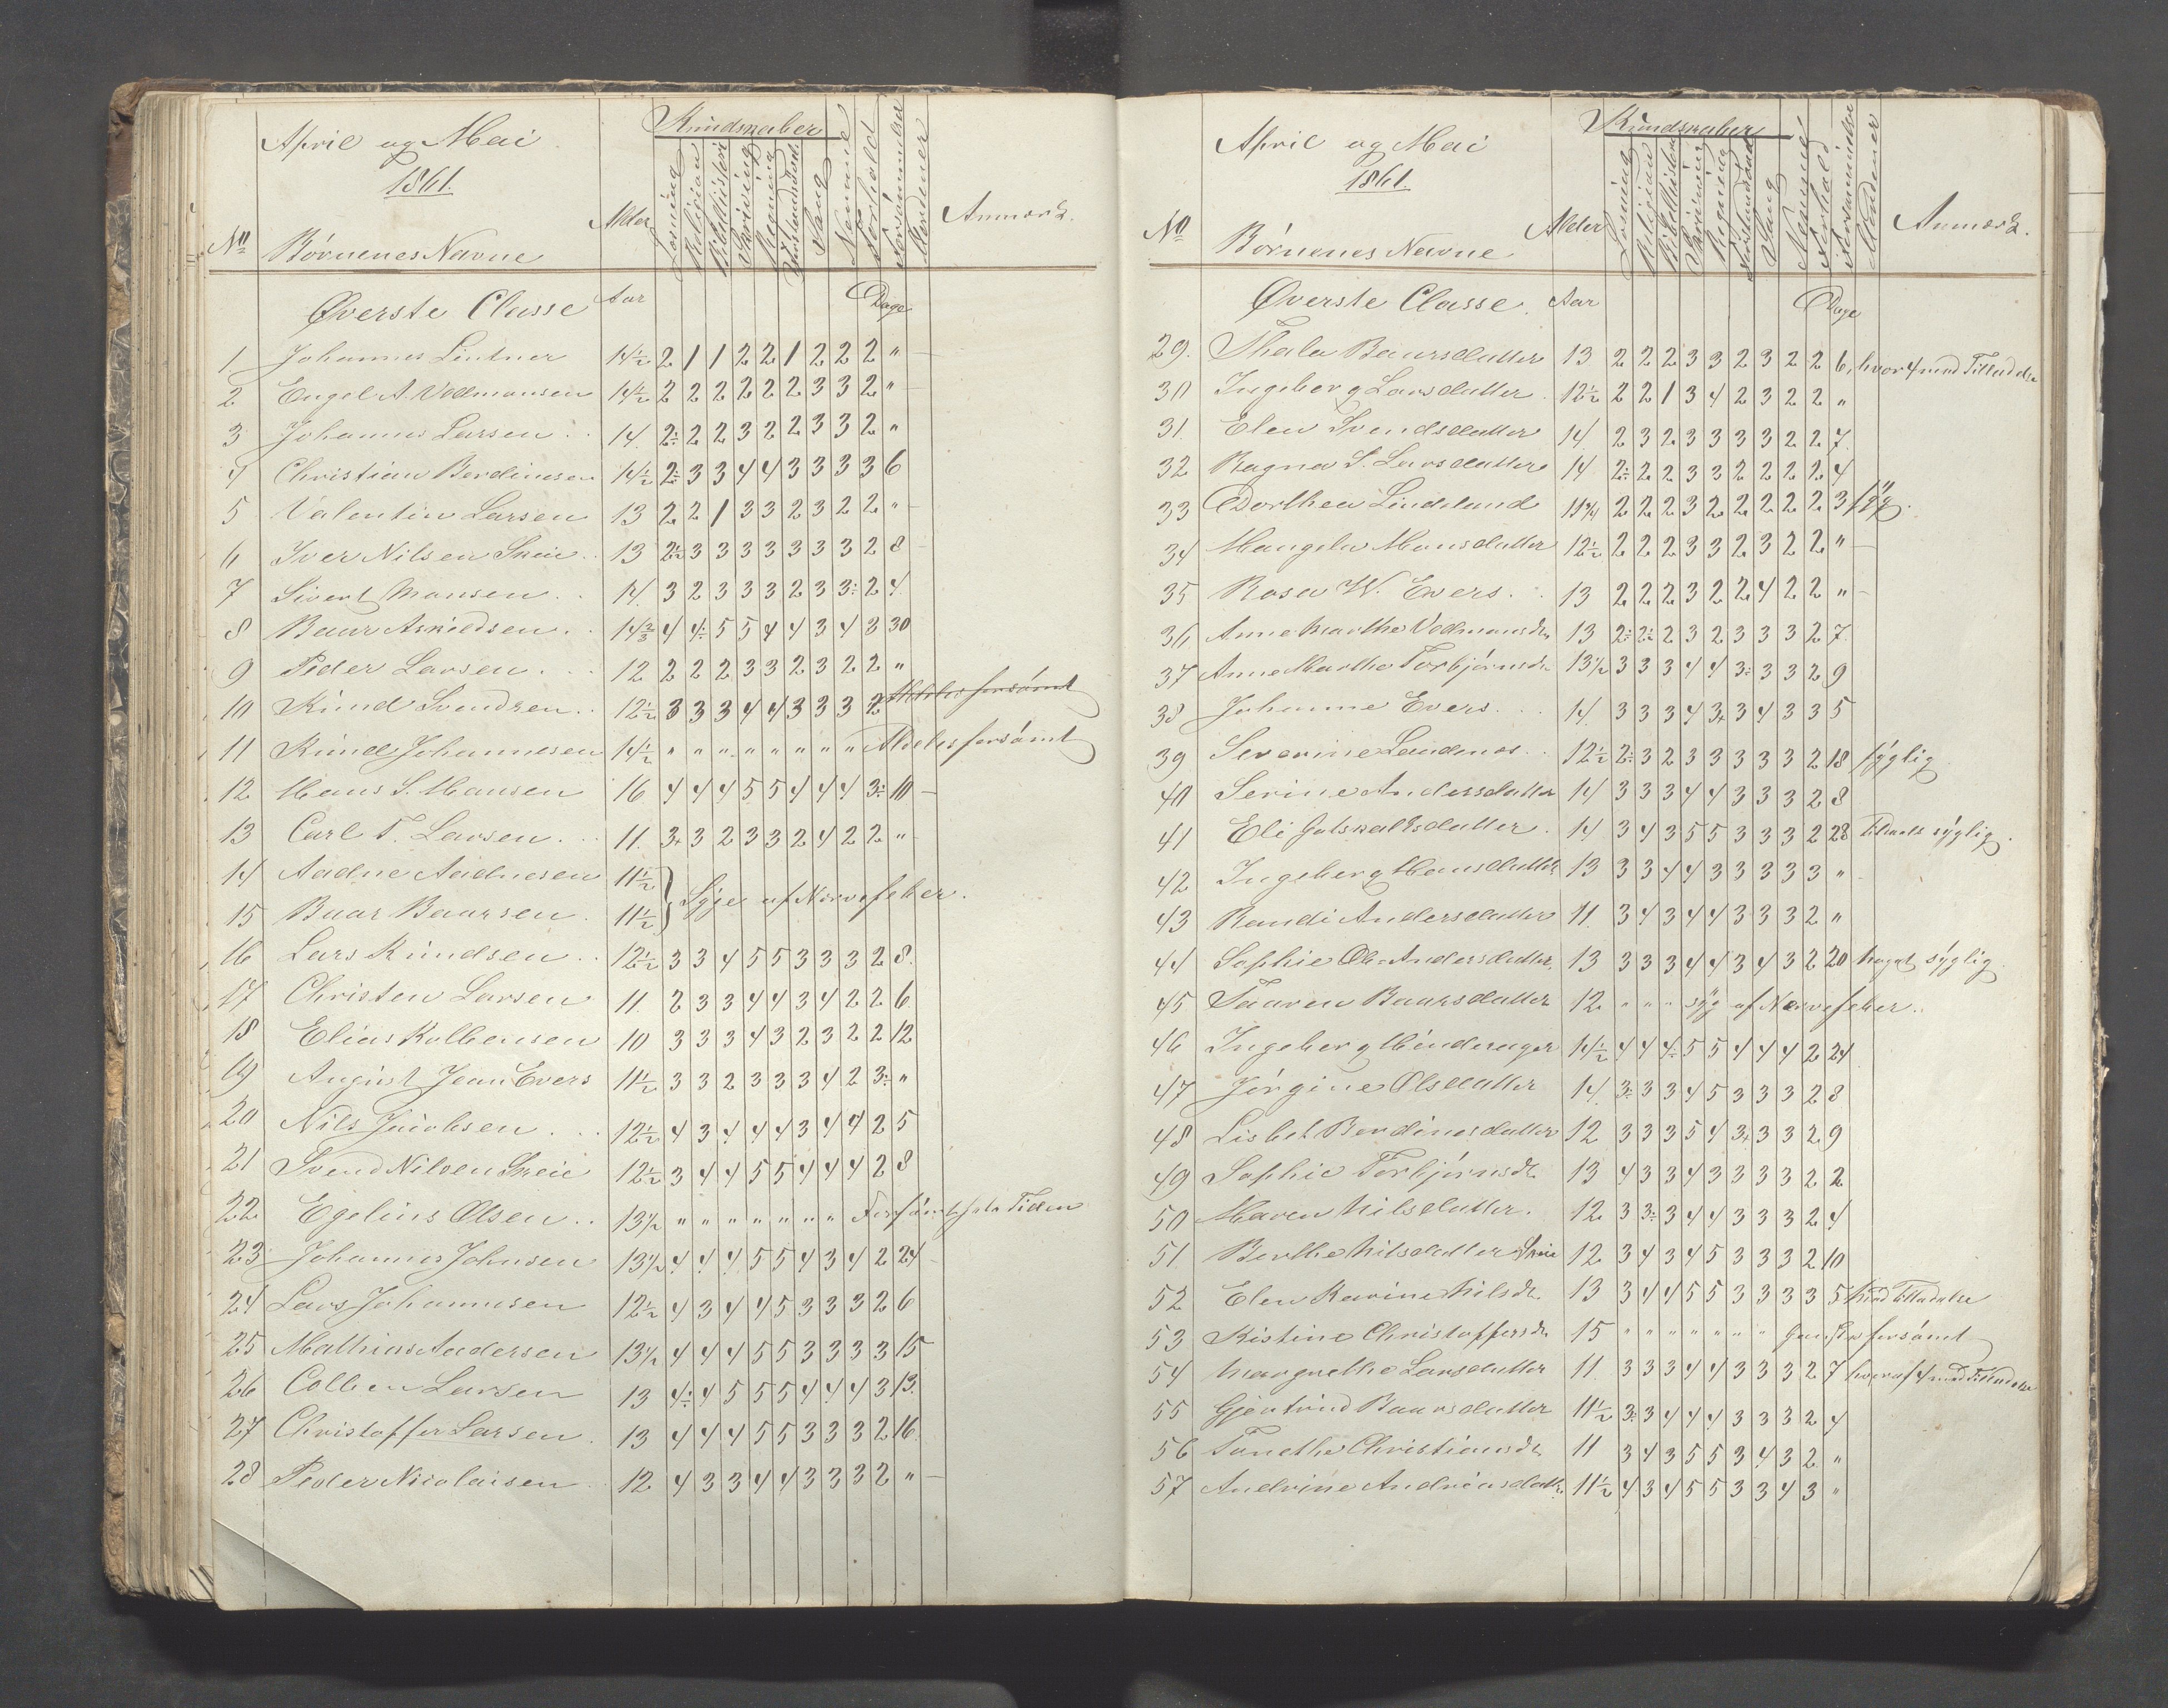 April og Mai
1861.
Kundskaber
No
Børnenes Navne
Alder
Læsning
Religion
Bibelhistorie
Skrivning
Regning
Forstandsudv
Sang
Nemme
Forhold
Forsømmelser
Anmærk.
Øverste Classe Aar Dage
1. Johannes Lintner 14½ 2 1 1 2 2 1 2 2 2 "
2 Engel A. Vedmansen 14½ 2 2 2 2 2 2 3 3 2 "
3 Johannes Larsen 14 2÷ 2 2 3 2 2 3 3 2 "
4 Christian Berdinesen 14½ 2÷ 3 3 4 4 3 3 3 3 6
5 Valentin Larsen 13 2 2 1 3 3 2 3 2 2 "
6 Iver Nilsen Skeie 13 2½ 3 3 3 3 3 3 3 2 8
7 Sivert Monsen 14 3 2 3 3 3 2 3 3÷ 2 4
8 Baar Askildsen 14⅔ 4 4÷ 5 5 4 4 3 4 3 30
9 Peder Larsen 12 2 2 2 3 3 2 3 2 2 "
10 Knud Svendsen 12½ 3 3 3 4 4 3 3 3 2 Aldeles forsømt
11 Knud Johannesen 14½ " " " " " " " " Aldeles forsømt
12 Hans S. Hansen 16 4 4 4 5 5 4 4 4 3÷ 10
13 Carl T. Larsen 11 3+ 3 2 3 3 2 4 2 2 "
14 Aadne Aadnesen 11½
15 Baar Baarsen 11½ } Syge af Nervefeber.
16 Lars Knudsen 12½ 3 3 4 5 5 3 3 3 2 8
17 Christen Larsen 11 2 3 3 4 4 3 4 2 2 6
18 Elias Kolbensen 10 3 3 3 4 3 2 3 2 2 12
19 August Jean Evers 11½ 3 3 2 3 3 3 4 2 3÷ "
20 Nils Jacobsen 12½ 4 3 4 4 4 3 4 4 2 5
21 Svend Nilsen Skeie 12½ 3 4 4 5 5 4 4 4 2 8
22 Egelius Olsen 13½ " " " " " " " Forsømt hele Tiden
23 Johannes Johnsen 13½ 4 4 4 5 5 4 3 4 2 24
24 Lars Johannesen 12½ 4 3 4 4 5 3 3 3 2 6
25 Mathias Andersen 13½ 4 4 4 5 5 3 3 3 3 15
26 Colben Larsen 13 4÷ 4 5 5 5 4 4 4 3 13
27 Christoffer Larsen 13 4 4 4 5 5 3 3 3 2 16
28 Peder Nicolaisen 12 4 3 3 4 4 3 3 3 2 "
April og Mai
1861.
Kundskaber
No
Børnenes Navne
Alder
Læsning
Religion
Bibelhistorie
Skrivning
Regning
Forstandsudv
Sang
Nemme
Forhold
Forsømmelser
Anmærk.
Øverste Classe. Aar Dage
29. Thala Baarsdatter 13 2 2 2 3 3 2 3 2 2 6, hvor 4 med Tilladelse
30 Ingeborg Larsdatter 12½ 2 2 1 3 4 2 3 2 2 "
31. Elen Svendsdatter 14 2 3 2 3 3 3 3 2 2 7
32 Ragna S. Larsdatter 14 2÷ 2 2 3 3 2 2 2 2 4
33 Dorthea Lindeland 11¾ 2 2 2 3 2 2 2 2 2 3 syg.
34 Mangela Monsdatter 12½ 2 2 2 3 3 2 3 2 2 "
35 Rosa W. Evers 13 2 2 2 3 2 2 4 2 2 "
36 Anne Marthe Vedmansdr 13 2÷ 2÷ 2 3 2 3 3 3 2 7
37 Anne Marthe Torbjørnsdr 13½ 3 3 3 4 4 3÷ 3 3 2 9
38 Johanne Evers 14 3 3 3 4 3+ 3 4 3 3 5
39 Severine 12½ 2÷ 3 2 3 3 3 3 3 2 18 syglig
40 Serine Andersdatter 14 3 3 3 4 4 3 3 3 2 8
41 Eli Gotskalksdatter 14 3 4 3 5 5 3 3 3 2 28 Tildeels syglig.
42 Ingeborg Hansdatter 13 3 3 4 4 3 3 3 3 3 "
43 Randi Andersdatter 11 3 4 3 4 4 3 3 3 2 "
44 Sophie Ol. Andersdatter 13 3 3 3 4 4 3 4 3 2 20 noget syglig
45 Taaren Baarsdatter 12 " " " syg af Nervefeber.
46 Ingeborg Hinderager 14½ 4 4 4÷ 5 5 4 4 4 2 24
47 Jørgine Olsdatter 14 3÷ 3 3 4 5 3 3 3 2 8
48 Lisbet Berdinesdatter 12 3 3 3 5 4 3+ 3 3 2 9
49 Sophie Torbjørnsdr 13 4 3 3 4 3 3 3 3 2 2
50 Maren Nilsdatter. 12 3 3÷ 3 4 4 3 3 3 2 4
51. Berthe Nilsdatter Skeie 12 3 4 3 4 5 3 3 3 2 10
52 Elen Karine Nilsdr. 13 3 4 4 5 5 3 3 3 3 5 med Tilladelse
53 Kistine Christoffersdr 15 " " " " " " " ganske forsømt
54 Margrethe Larsdatter 11 3 3 3 4 4 3 3 3 2 7 hvoraf 4 med Tilladelse
55 Gjertrud Baarsdatter 11½ 3÷ 3 4 4 4 3 3 3 2 4
56 Tonethe Christiansdr 11 3 4 3 5 5 3 4 3 2 "
57 Andrine Andreasdatter 11½ 4 3 4 5 5 3 3 4 3 "